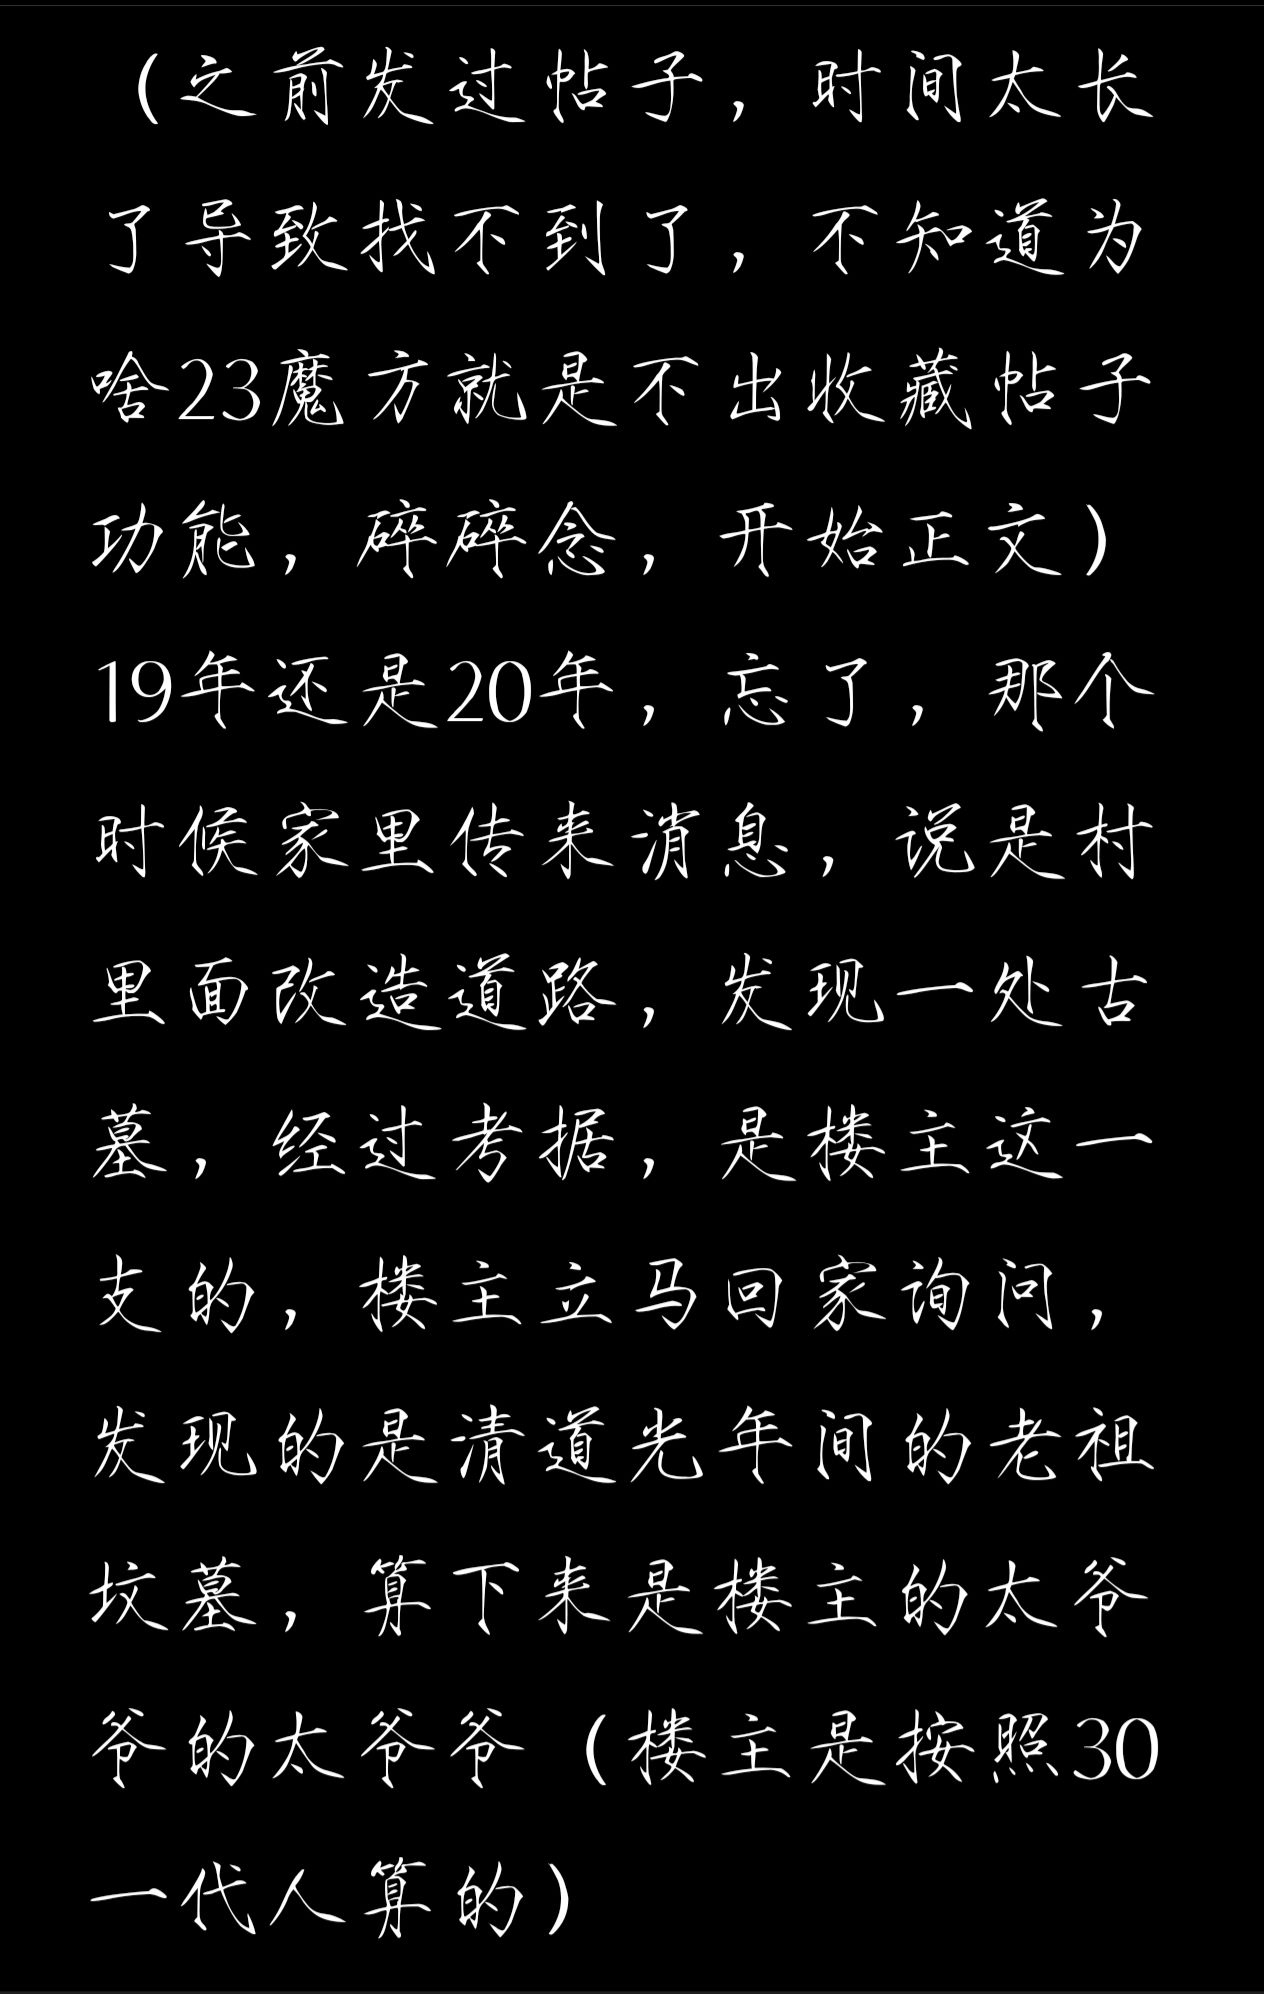 （之前发过帖子，时间太长
了导致找不到了，不知道为
啥23魔方就是不出收藏帖子
功能，碎碎念，开始正文）
19年还是20年，忘了，那个
时候家里传来消息，说是村
里面改造道路，发现一处古
墓，经过考据，是楼主这一
支的，楼主立马回家询问，
发现的是清道光年间的老祖
坟墓，算下来是楼主的太爷
爷的太爷爷（楼主是按照30
一代人算的）